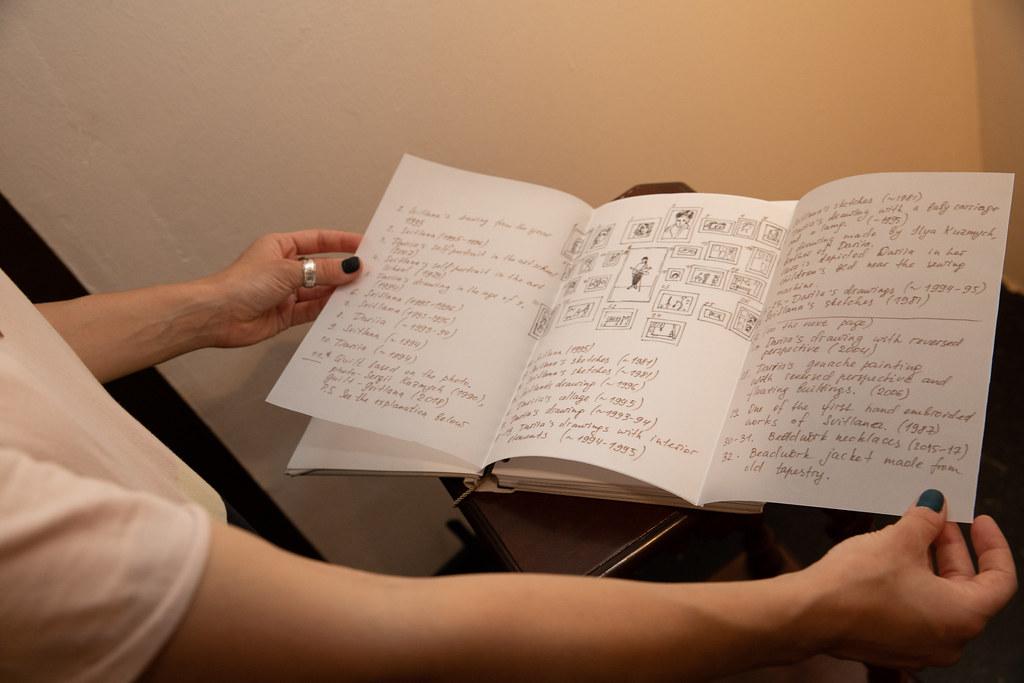 Svitlana's drawing from the
Svitlana (1995-1996)
3. Dariia's self portrait in the art school
Svitlana's self portrait in the
drawing in the age of
Svitlana (1995-1996)
8. Dariia (~1993-94)
9. Svitlana (~1994)
10. Dariia (~1994)
Quild based on the photo.
photo - Sergii Kuzmych (1990),
Quild - Svitlana (2018)
P.S. See the explanation below
Svitlana (1995)
Svitlana's sketches (~1981)
Svitlana's sketches (~1981)
drawing (~1996)
Dariia's collage (~1995)
Dariia's drawing (~1993-94)
Dariia's drawings with interior
elements (~1994-1995)
Svitlana's sketches (~1981)
Dariia's drawing with a baby carriage
and a lamp. (~1995)
drawing made by Ilya Kuzmych,
brother of Dariia.
is depicted Dariia in her
children's bed near the sewing
machine
Dariia's drawings (~1994-95)
Svitlana's sketches (1981)
(on the next page)
Dariia's drawing with reversed
perspective (2004)
Dariia's gouache painting
with reversed perspective and
floating buildings. (2006)
29. One of the first hand embroided
works of Svitlana. (1987)
30-31. Beadwork necklaces (2015-17)
32. Beadwork jacket made from
old tapestry.